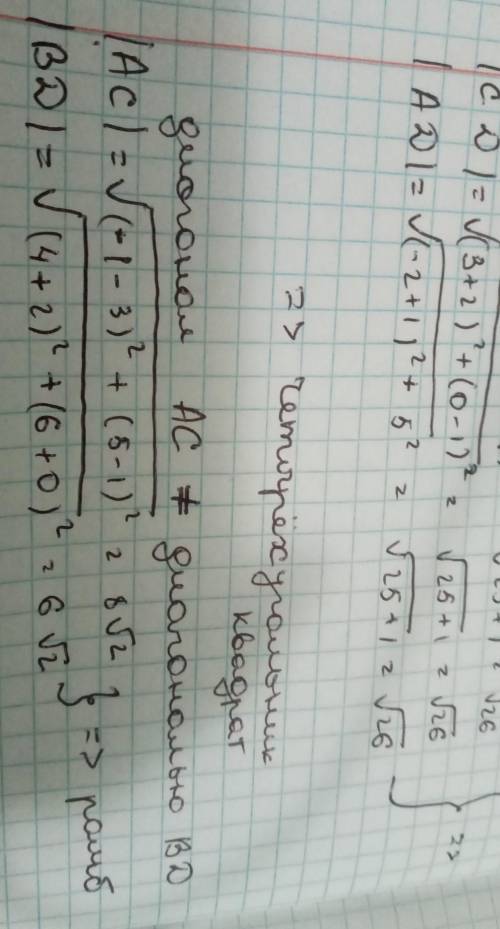 √25+1 = √26
|CD| = √(3+2)² + (0-1)² = √25+1 = √26
|AD| = √(-2+1)² + 5² = √25+1 = √26 } =>
=> четырёхугольник
квадрат
диагонали AC ≠ диагональю BD
|AC| = √(-1-3)² + (5-1)² = 8√2
|BD| = √(4+2)² + (6+0)² = 6√2 } => ромб